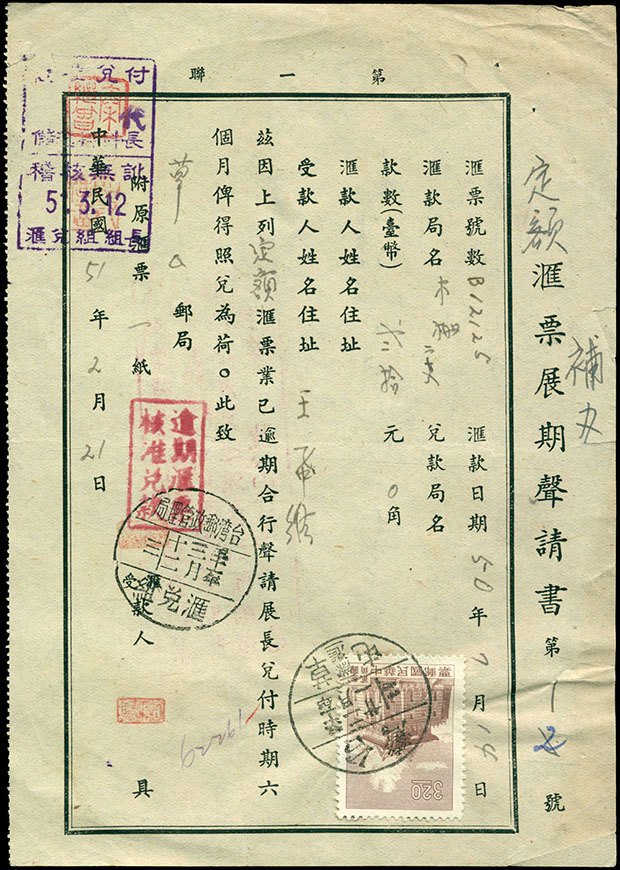 第一聯
定額匯票展期聲請書 第1號
補
匯票號數 B12125 匯款日期 50年7月14日
匯款局名 木柵 兌款局名
款數(臺幣) 拾元0角
匯款人姓名住址
受款人姓名住址 王
茲因上列定額匯票業已逾期合行聲請展長兌付時期六
個月俾得照兌為荷。此致
郵局
附原匯票一紙
匯款人 具
受
中華民國51年2月21日
付兌
代
長
稽核無訛
51.3.12
匯兌組組長
逾期匯票
核准兌款
台灣郵政管理局
五十一年
三月
十二
匯兌組
中華民國郵票
3.20
62261